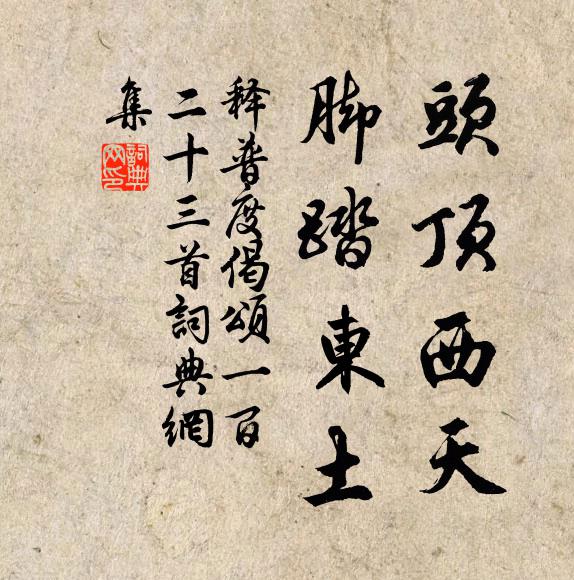 頭頂西天
脚踏東土
释普度偈頌一百
二十三首詞典網
集
詞典
网印